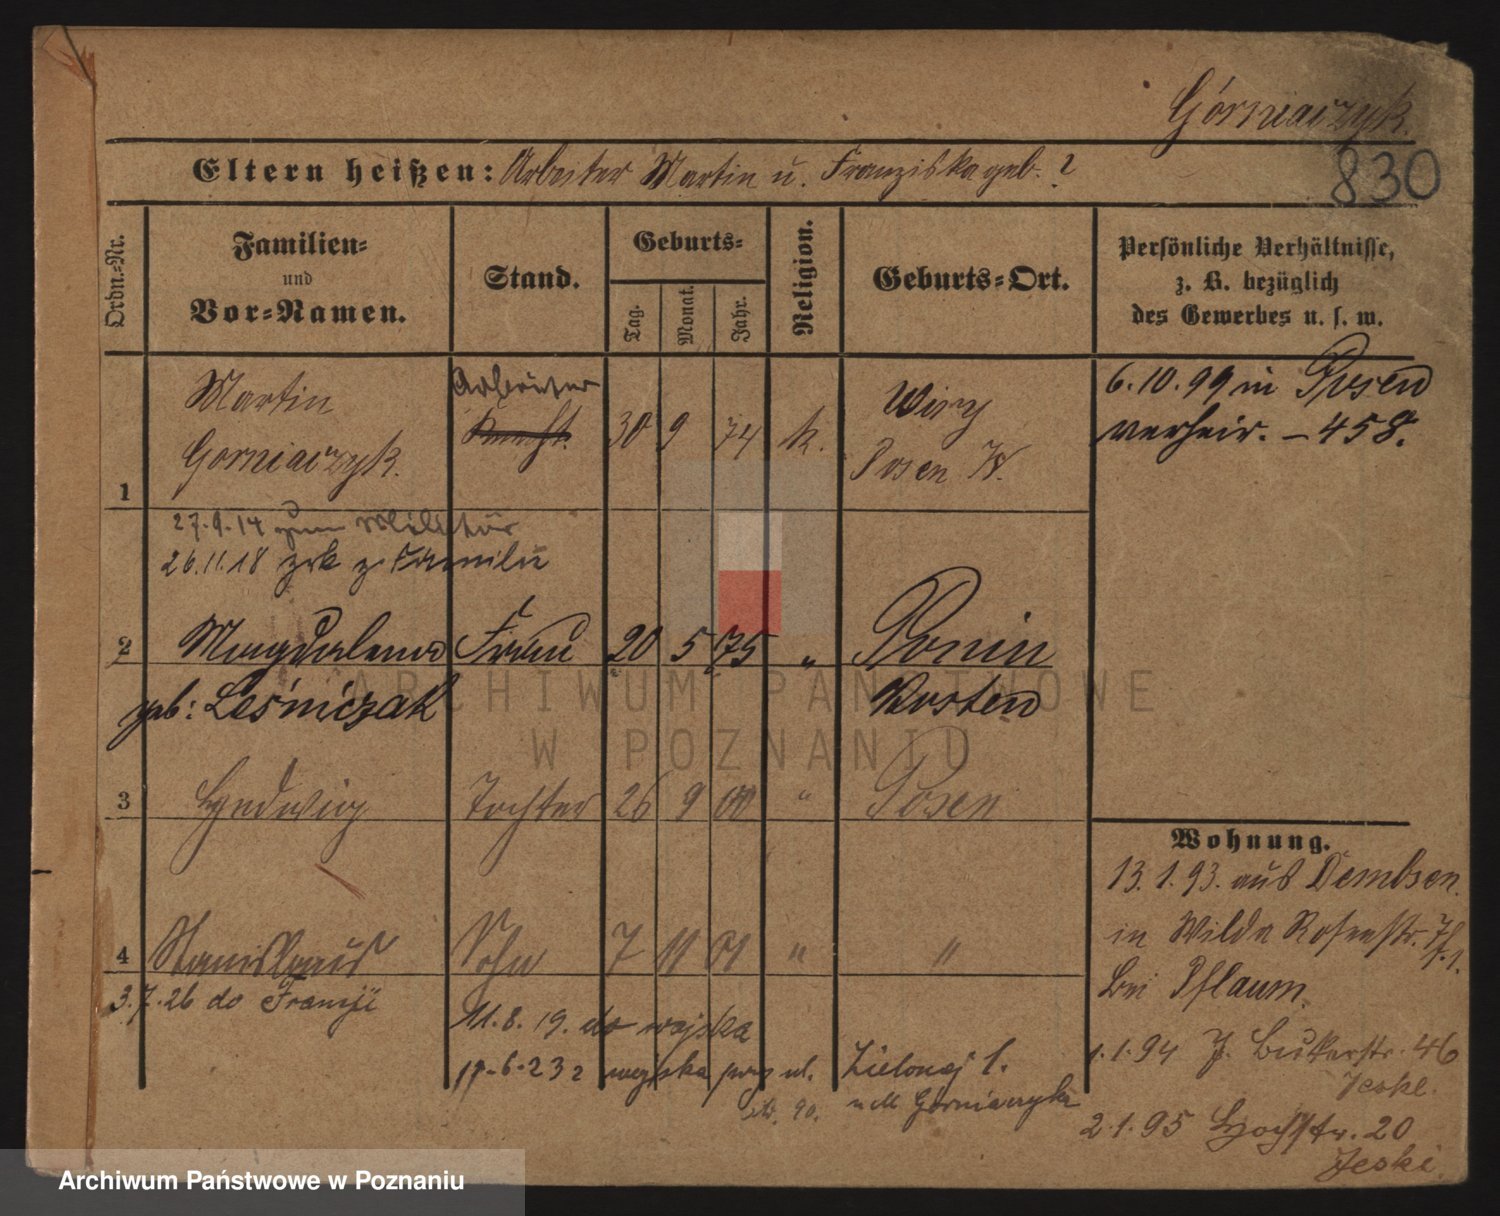 Górniaczyk.
830
Eltern heißen: Arbeiter Martin u. Franziska geb. ?
Ordn.=Nr.
Familien=
und
Vor=Namen.
Stand.
Geburts=
Tag.
Monat.
Jahr.
Religion.
Geburts=Ort.
Persönliche Verhältnisse,
z. B. bezüglich
des Gewerbes u. s. w.
1
Martin
Gorniaczyk.
Arbeiter
Knecht.
30 9 74 k.
Wiry
Posen W.
6.10.99 in Posen
verheir. – 458.
27.9.14 zum Militär
26.11.18 zrk z. Familie
2 Magdalena Frau 20 5 75 " Konin
geb: Leśniczak Kosten
3 Hedwig Tochter 26 9 00 " Posen
4 Stanislaus Sohn 7 11 01 " "
3.7.26 do Francji
11.8.19. do wojska
17-6-23 z wojska przy ul. Zielonej 1.
u M Górniaczyka
Wohnung.
13.1.93. aus Dembsen
in Wilda Rosenstr.
bei Pflaum.
1.1.94 Bukerstr. 46
Jeske.
2.1.95 Hochstr. 20
Jeske.
ARCHIWUM PAŃSTWOWE
W POZNANIU
Archiwum Państwowe w Poznaniu